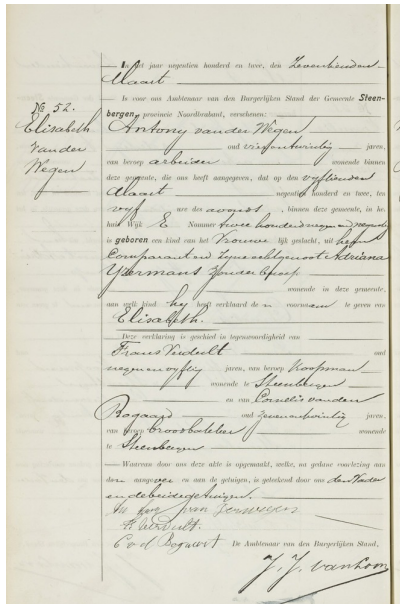 In het jaar negentien honderd en twee, den Zeventienden
Maart
is voor ons Ambtenaar van den Burgerlijken Stand der Gemeente Steen-
bergen, provincie Noordbrabant, verschenen:
No 52.
Elisabeth
van der
Wegen
Antony van der Wegen
oud vierentwintig jaren,
van beroep arbeider wonende binnen
deze gemeente, die ons heeft aangegeven, dat op den vijftienden
Maart negentienhonderd en twee, ten
vijf ure des avonds, binnen deze gemeente, in he.
huis Wijk E Nummer twee honderd negen en negentig
is geboren een kind van het Vrouwe lijk geslacht, uit hem
Comparant en zijne echtgenoot Adriana
IJzermans zonder beroep
wonende in deze gemeente,
aan welk kind hij heeft verklaard de n voornaam te geven van
Elisabeth.
Deze verklaring is geschied in tegenwoordigheid van
Frans Verdult oud
negen en vijftig jaren, van beroep Koopman
wonende te Steenbergen
en van Cornelis van den
Bogaard oud zevenentwintig jaren,
van beroep broodbakker wonende
te Steenbergen
Waarvan door ons deze akte is opgemaakt, welke, na gedane voorlezing aan
den aangever en aan de getuigen, is geteekend door ons den Vader
en de beide getuigen.
van
F Verdult.
C v d Bogaert
De Ambtenaar van den Burgerlijken Stand,
J. J. van Loon